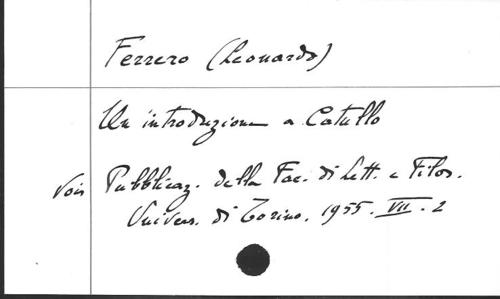 Ferrero (Leonardo)
Un introduzione a Catullo
Voir Pubblicaz. della Fac. di Lett. e Filos.
Univers. di Torino. 1955. VII. 2